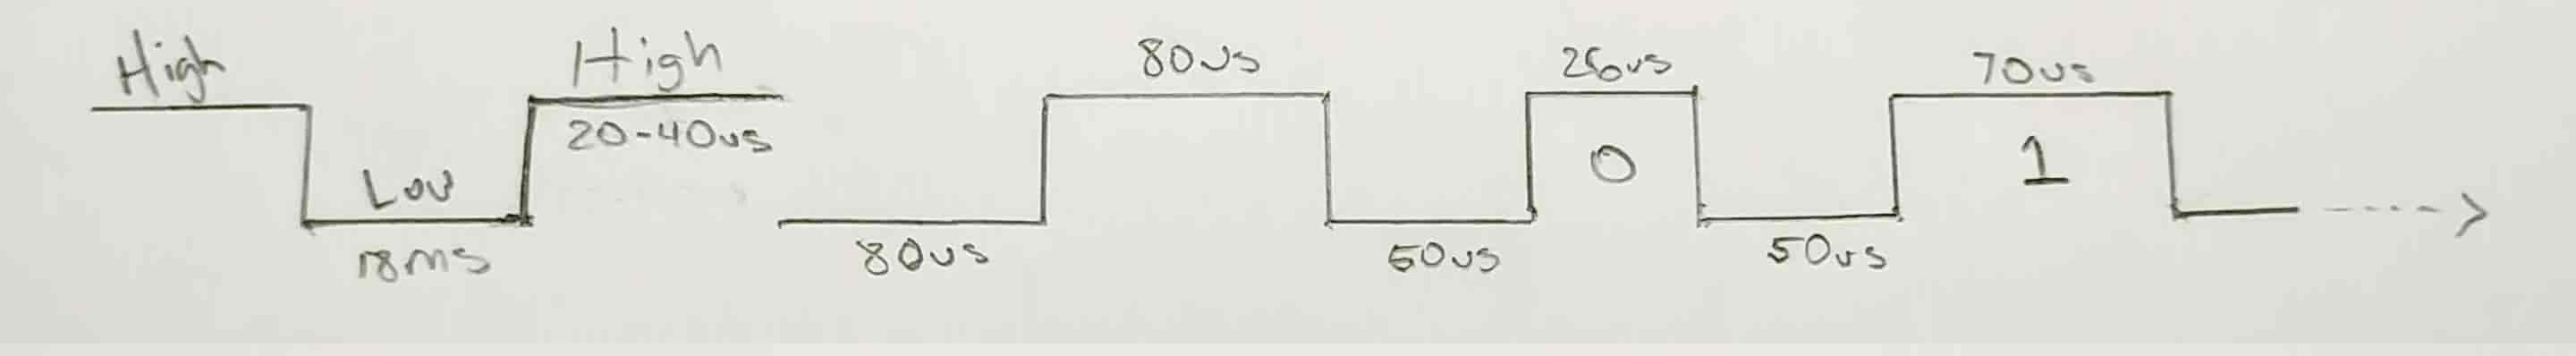 High
Low
18ms
High
20-40us
80us
80us
50us
26us
0
50us
70us
1